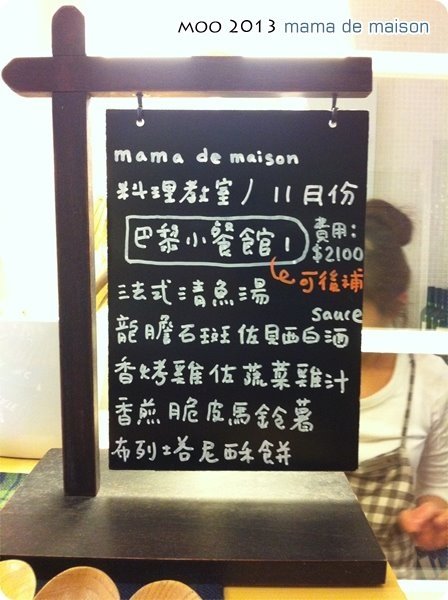 MOO 2013 mama de maison
mama de maison
料理教室/11月份
巴黎小餐館1
費用:
$2100
可後補
法式清魚湯
sauce
龍膽石斑佐貝西白酒
香烤雞佐蔬菜雞汁
香煎脆皮馬鈴薯
布列塔尼酥餅